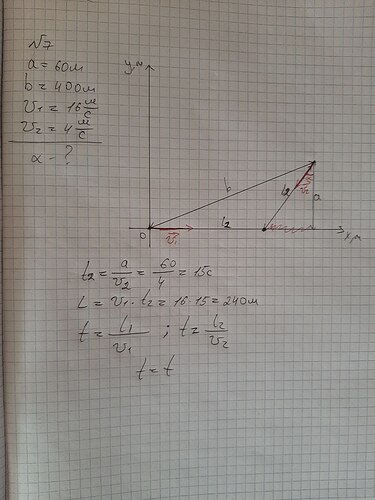 №7
a = 60м
b = 400м
v₁ = 16 м/с
v₂ = 4 м/с
α - ?
y, м
b
l₂
v₂
a
0
v₁
l₂
x, м
t₂ = a/v₂ = 60/4 = 15с
L = v₁ · t₂ = 16 · 15 = 240м
t = l₁/v₁ ; t = l₂/v₂
t = t